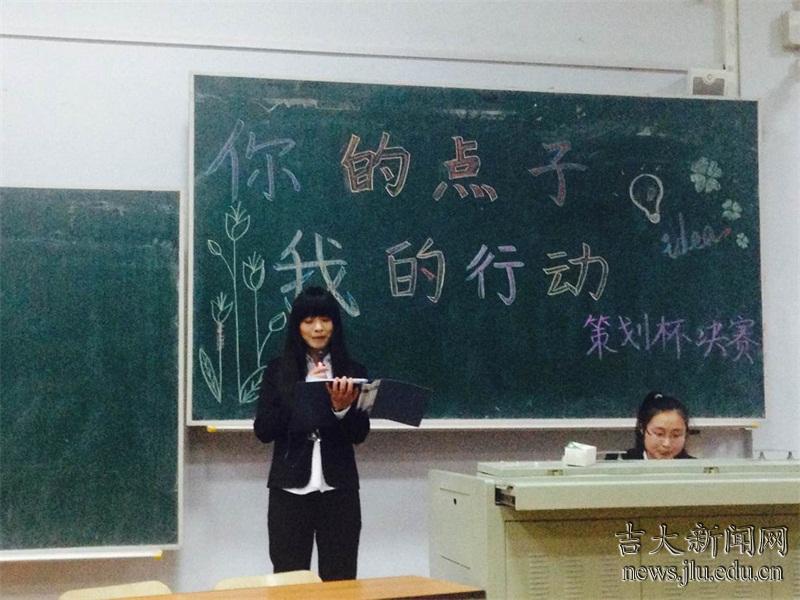 你的点子
idea
我的行动
策划杯决赛
吉大新闻网
news.jlu.edu.cn